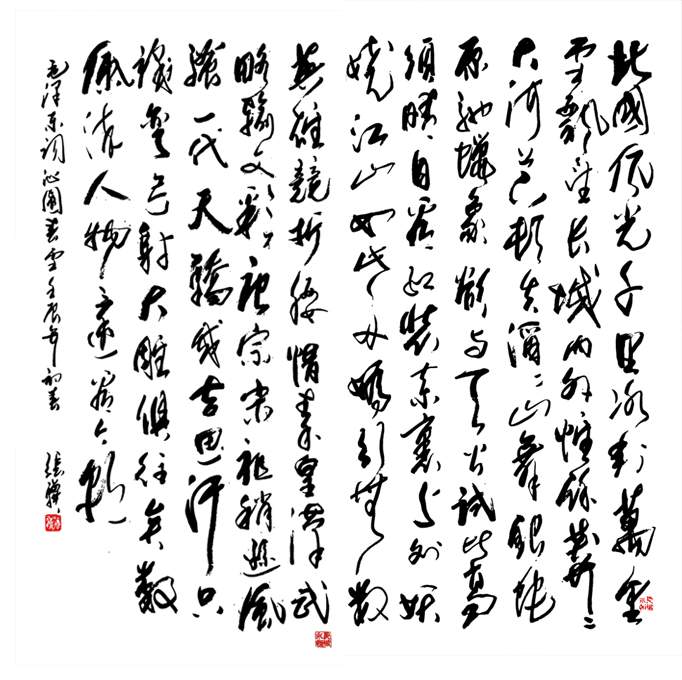 北國風光千里冰封萬里
雪飄望长城内外惟餘莽々
大河上下頓失滔々山舞銀蛇
原馳蠟象欲与天公試比高
須晴日看紅裝素裹分外妖
嬈江山如此多嬌引無數
英雄競折腰惜秦皇漢武
略輸文彩唐宗宋祖稍遜風
騷一代天驕成吉思汗只
識彎弓射大雕俱往矣數
風流人物還看今朝
毛澤东詞沁園春雪壬辰年初春